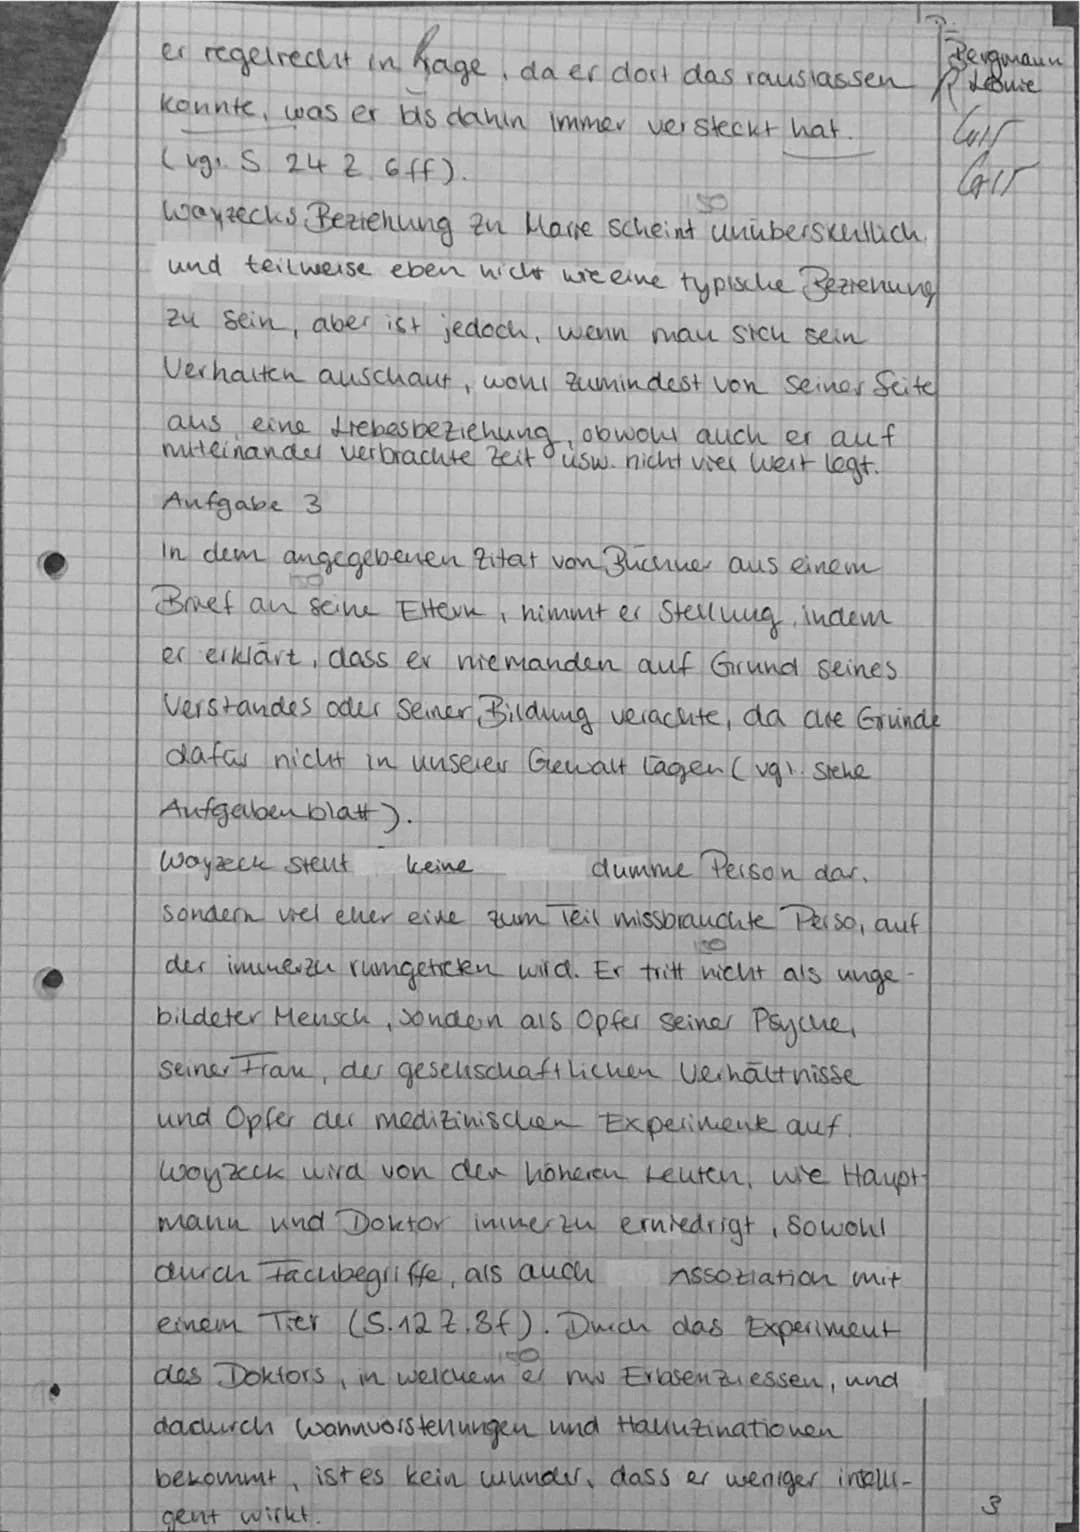 er regelrecht in Rage, da er dort das rauslassen
konnte, was er bis dahin immer versteckt hat.
(vgl. S. 24 Z. 6ff).
Woyzecks Beziehung zu Marie scheint unübersichtlich
und teilweise eben nicht wie eine typische Beziehung
zu sein, aber ist jedoch, wenn man sich sein
Verhalten anschaut, wohl zumindest von seiner Seite
aus eine Liebesbeziehung, obwohl auch er auf
miteinander verbrachte Zeit usw. nicht viel Wert legt.
Aufgabe 3
In dem angegebenen Zitat von Büchner aus einem
Brief an seine Eltern, nimmt er Stellung, indem
er erklärt, dass er niemanden auf Grund seines
Verstandes oder seiner Bildung verachte, da die Gründe
dafür nicht in unserer Gewalt lägen (vgl. siehe
Aufgabenblatt).
Woyzeck stellt keine dumme Person dar,
sondern viel eher eine zum Teil missbrauchte Perso, auf
der immerzu rumgetreten wird. Er tritt nicht als unge-
bildeter Mensch, sondern als Opfer seiner Psyche,
seiner Frau, der gesellschaftlichen Verhältnisse
und Opfer der medizinischen Experimente auf.
Woyzeck wird von den höheren Leuten, wie Haupt-
mann und Doktor immerzu erniedrigt, sowohl
durch Fachbegriffe, als auch Assoziation mit
einem Tier (S. 12 Z. 3f). Durch das Experiment
des Doktors, in welchem er nur Erbsen zu essen, und
dadurch Wahnvorstellungen und Halluzinationen
bekommt, ist es kein wunder, dass er weniger intelli-
gent wirkt.
Bergmann
Leonie
R
50
100
150
3